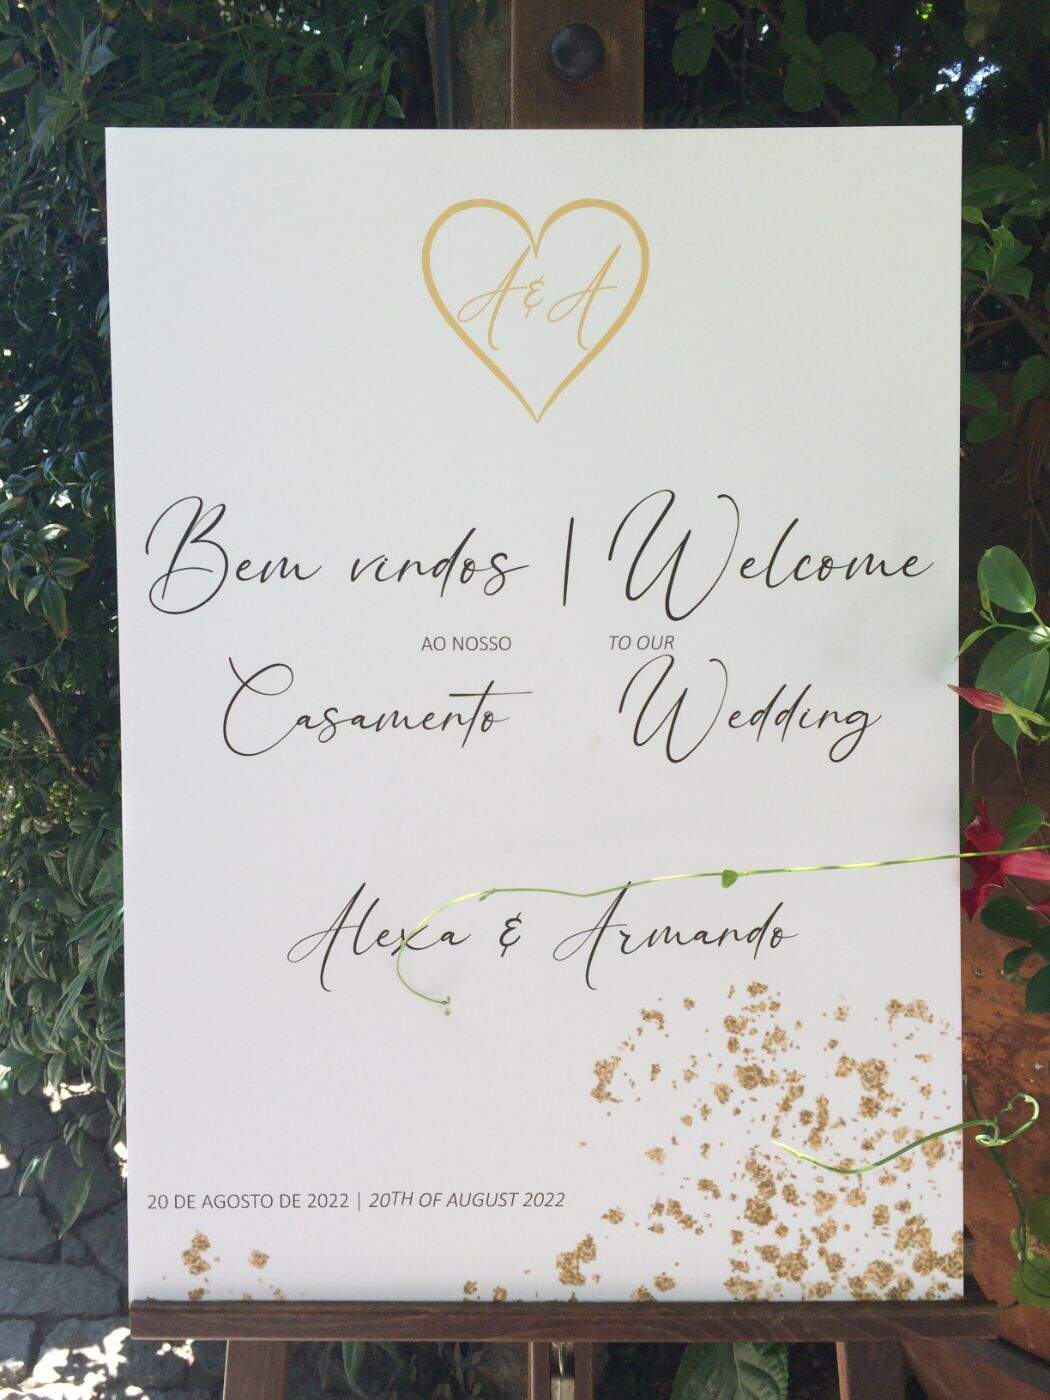 A & A
Bem vindos | Welcome
AO NOSSO TO OUR
Casamento Wedding
Alexa & Armando
20 DE AGOSTO DE 2022 | 20TH OF AUGUST 2022